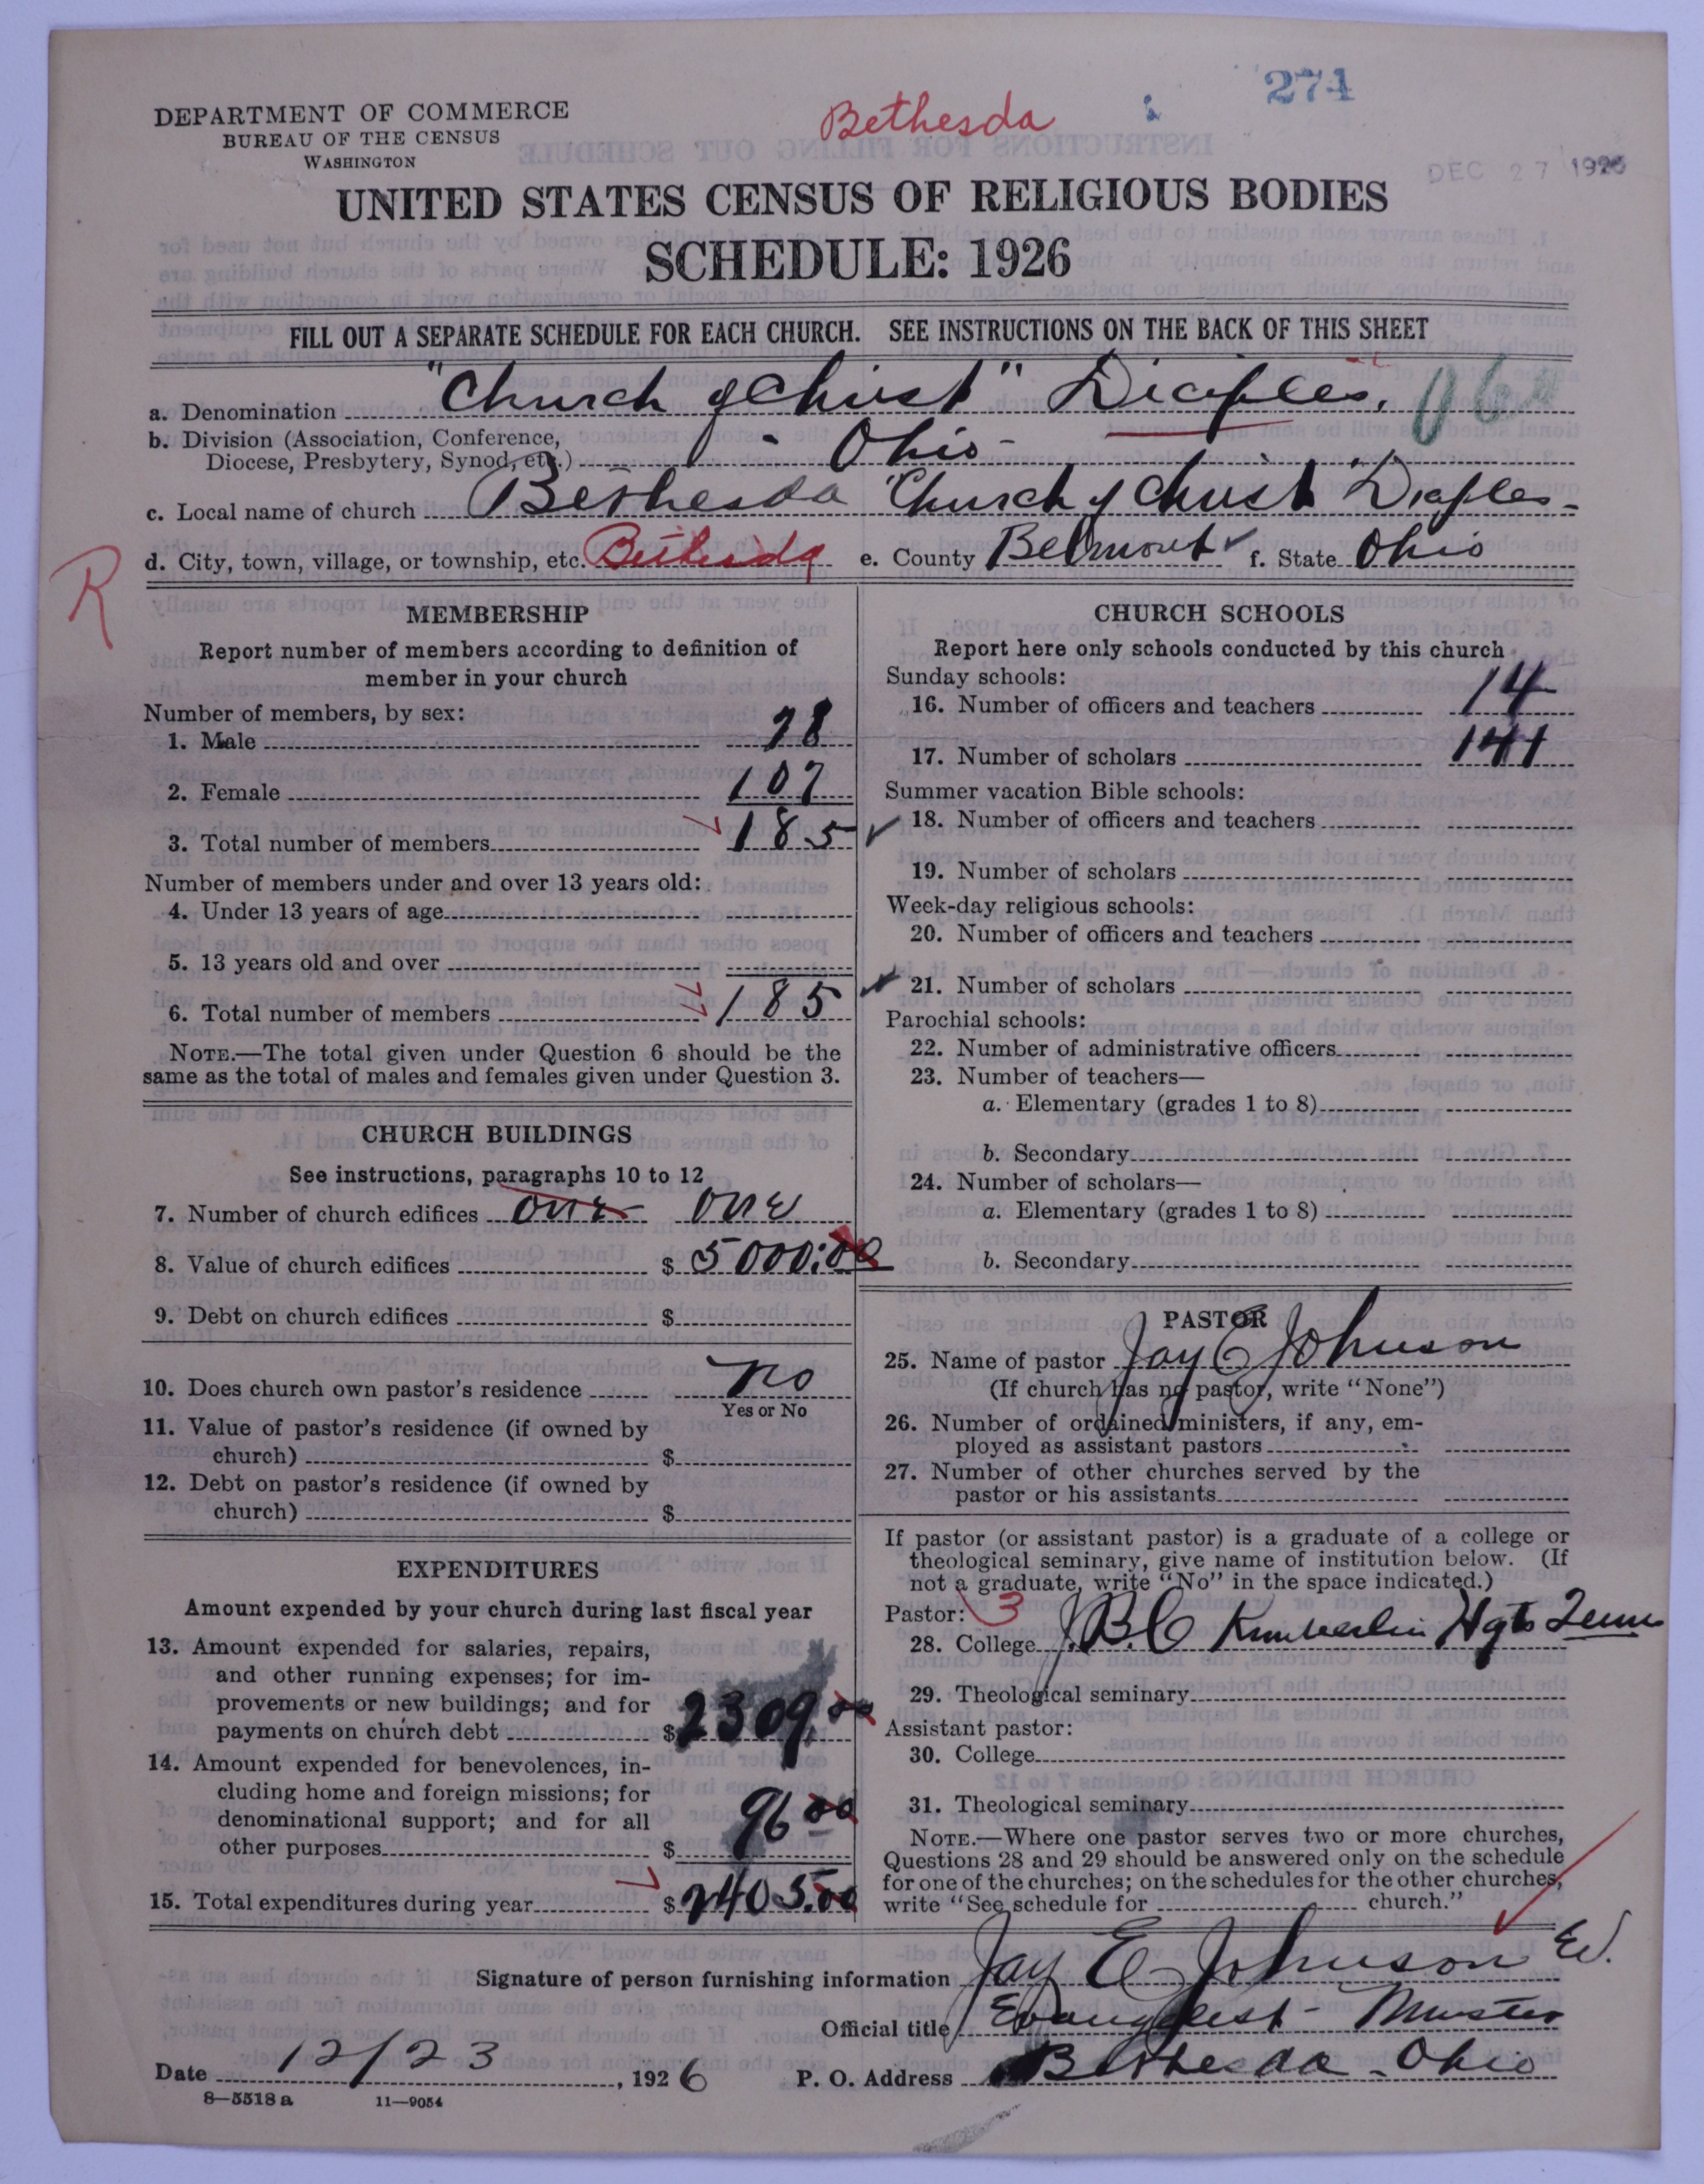 274
Bethesda
DEC 27 1926
DEPARTMENT OF COMMERCE
BUREAU OF THE CENSUS
WASHINGTON
UNITED STATES CENSUS OF RELIGIOUS BODIES
SCHEDULE: 1926
FILL OUT A SEPARATE SCHEDULE FOR EACH CHURCH. SEE INSTRUCTIONS ON THE BACK OF THIS SHEET
a. Denomination "Church of Christ" Diciples.
b. Division (Association, Conference,
Diocese, Presbytery, Synod, etc.) - Ohio -
c. Local name of church Bethesda "Church of Christ Diciples -
d. City, town, village, or township, etc. Bethesda e. County Belmont f. State Ohio
R
MEMBERSHIP
Report number of members according to definition of
member in your church
Number of members, by sex:
1. Male 78
2. Female 107
3. Total number of members 185
Number of members under and over 13 years old:
4. Under 13 years of age
5. 13 years old and over
6. Total number of members 185
NOTE.—The total given under Question 6 should be the
same as the total of males and females given under Question 3.
CHURCH BUILDINGS
See instructions, paragraphs 10 to 12
7. Number of church edifices one one
8. Value of church edifices $ 5000.00
9. Debt on church edifices $
10. Does church own pastor's residence no
Yes or No
11. Value of pastor's residence (if owned by
church) $
12. Debt on pastor's residence (if owned by
church) $
EXPENDITURES
Amount expended by your church during last fiscal year
13. Amount expended for salaries, repairs,
and other running expenses; for im-
provements or new buildings; and for
payments on church debt $ 2309.00
14. Amount expended for benevolences, in-
cluding home and foreign missions; for
denominational support; and for all
other purposes $ 96 00
15. Total expenditures during year $ 2405.00
CHURCH SCHOOLS
Report here only schools conducted by this church
Sunday schools:
16. Number of officers and teachers 14
17. Number of scholars 141
Summer vacation Bible schools:
18. Number of officers and teachers
19. Number of scholars
Week-day religious schools:
20. Number of officers and teachers
21. Number of scholars
Parochial schools:
22. Number of administrative officers
23. Number of teachers—
a. Elementary (grades 1 to 8)
b. Secondary
24. Number of scholars—
a. Elementary (grades 1 to 8)
b. Secondary
PASTOR
25. Name of pastor Jay E Johnson
(If church has no pastor, write "None")
26. Number of ordained ministers, if any, em-
ployed as assistant pastors
27. Number of other churches served by the
pastor or his assistants
If pastor (or assistant pastor) is a graduate of a college or
theological seminary, give name of institution below. (If
not a graduate, write "No" in the space indicated.)
Pastor: 3
28. College J.B.C Kimberlin Hgts Tenn
29. Theological seminary
Assistant pastor:
30. College
31. Theological seminary
NOTE.—Where one pastor serves two or more churches,
Questions 28 and 29 should be answered only on the schedule
for one of the churches; on the schedules for the other churches,
write "See schedule for church."
Signature of person furnishing information Jay E Johnson
Official title Evangelist - Minister
Date 12/23, 1926 P. O. Address Bethesda - Ohio
8—5518 a 11—9054